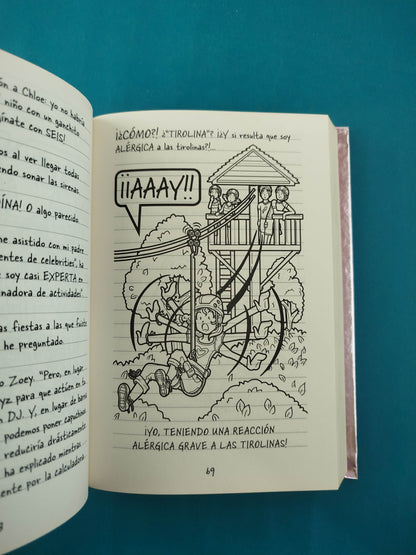 ón a Chloe: yo no habría
niño con un ganchito
gínate con SEIS!
os al ver llegar todas
endo sonar las sirenas
ÍNA! O algo parecido.
me asistido con mi padre
entes de celebrities", ha
soy casi EXPERTA en
nadora de actividades".
as fiestas a las que fuiste
he preguntado.
o Zoey. "Pero, en lugar
yz para que actúen en tu
n DJ. Y, en lugar de barra
podemos poner capuchinos
reduciría drásticamente
ha explicado mientras
ente por la calculadora
¡¿CÓMO?! ¿"TIROLINA"? ¡¿Y si resulta que soy
ALÉRGICA a las tirolinas?!...
¡¡AAAY!!
¡YO, TENIENDO UNA REACCIÓN
ALÉRGICA GRAVE A LAS TIROLINAS!
69